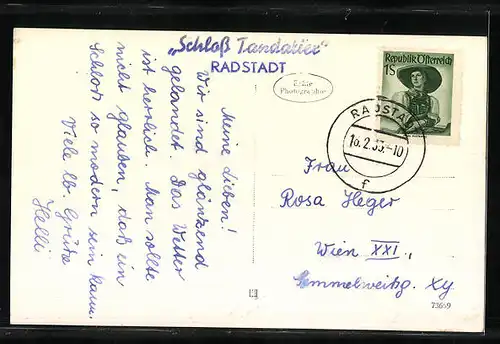 „Schloß Tandalier"
RADSTADT
Echte
Photographie
Republik Österreich
1S
RADSTADT
16.2.55.-10
f
Meine Lieben!
Wir sind glänzend
gelandet. Das Wetter
ist herrlich. Man sollte
nicht glauben, daß ein
Schloß so modern sein kann.
Viele lb. Grüße
Helli
Frau
Rosa Heger
Wien XXI.,
Semmelweisg.
73659